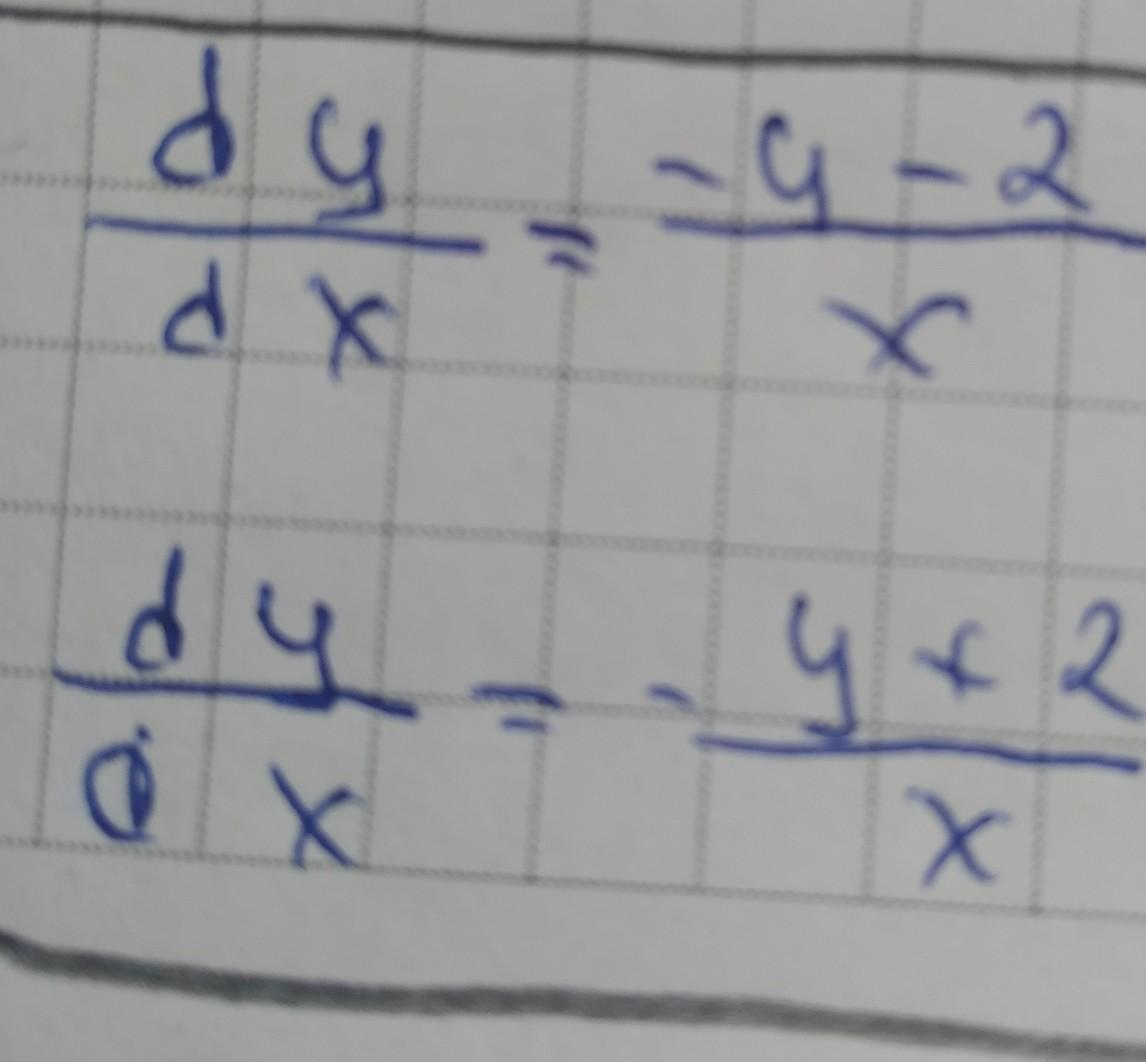 dy/dx = (-y - 2)/x
dy/dx = - (y + 2)/x